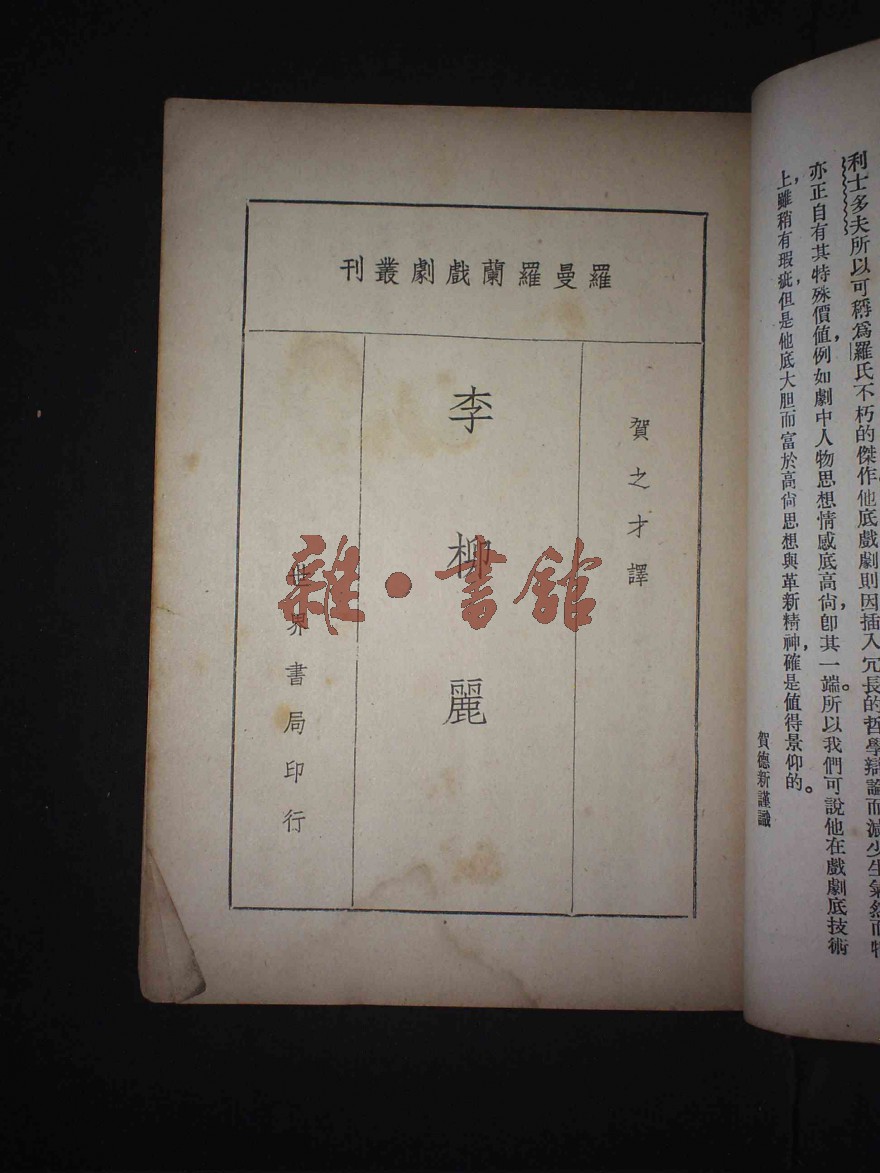 利士多夫所以可稱爲羅氏不朽的傑作他底戲劇則因插入冗長的哲學辯論而減少生氣然而
亦正自有其特殊價值，例如劇中人物思想情感底高尙，卽其一端。所以我們可說他在戲劇底技術
上，雖稍有瑕疵，但是他底大胆而富於高尙思想與革新精神，確是值得景仰的。
賀德新謹識
羅曼羅蘭戲劇叢刊
賀之才譯
李柳麗
世界書局印行
雜·書館